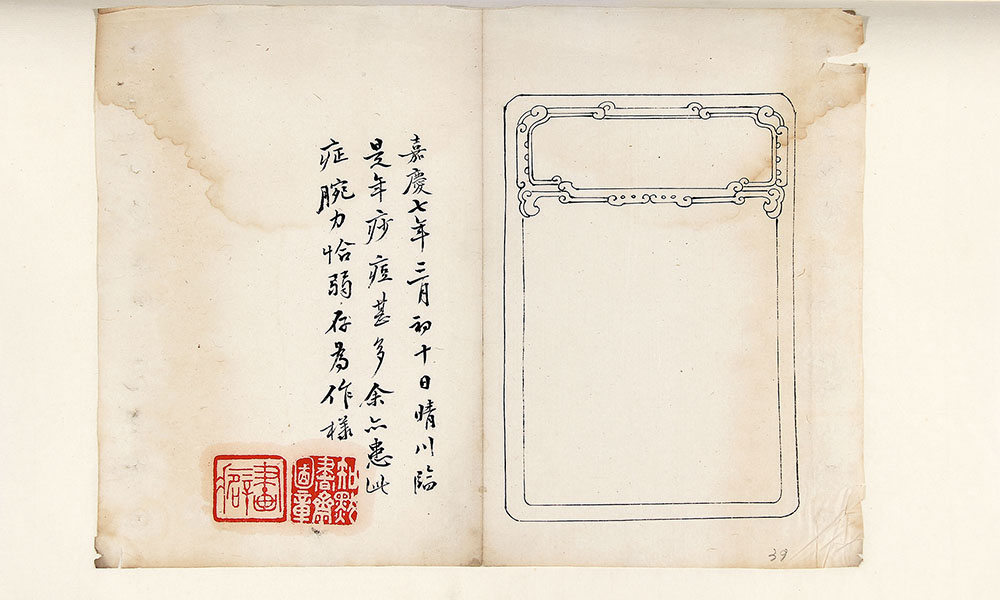 嘉慶七年三月初十日晴川臨
是年痧痘甚多余亦患此
症腕力恰弱存為作樣
畫癖
39